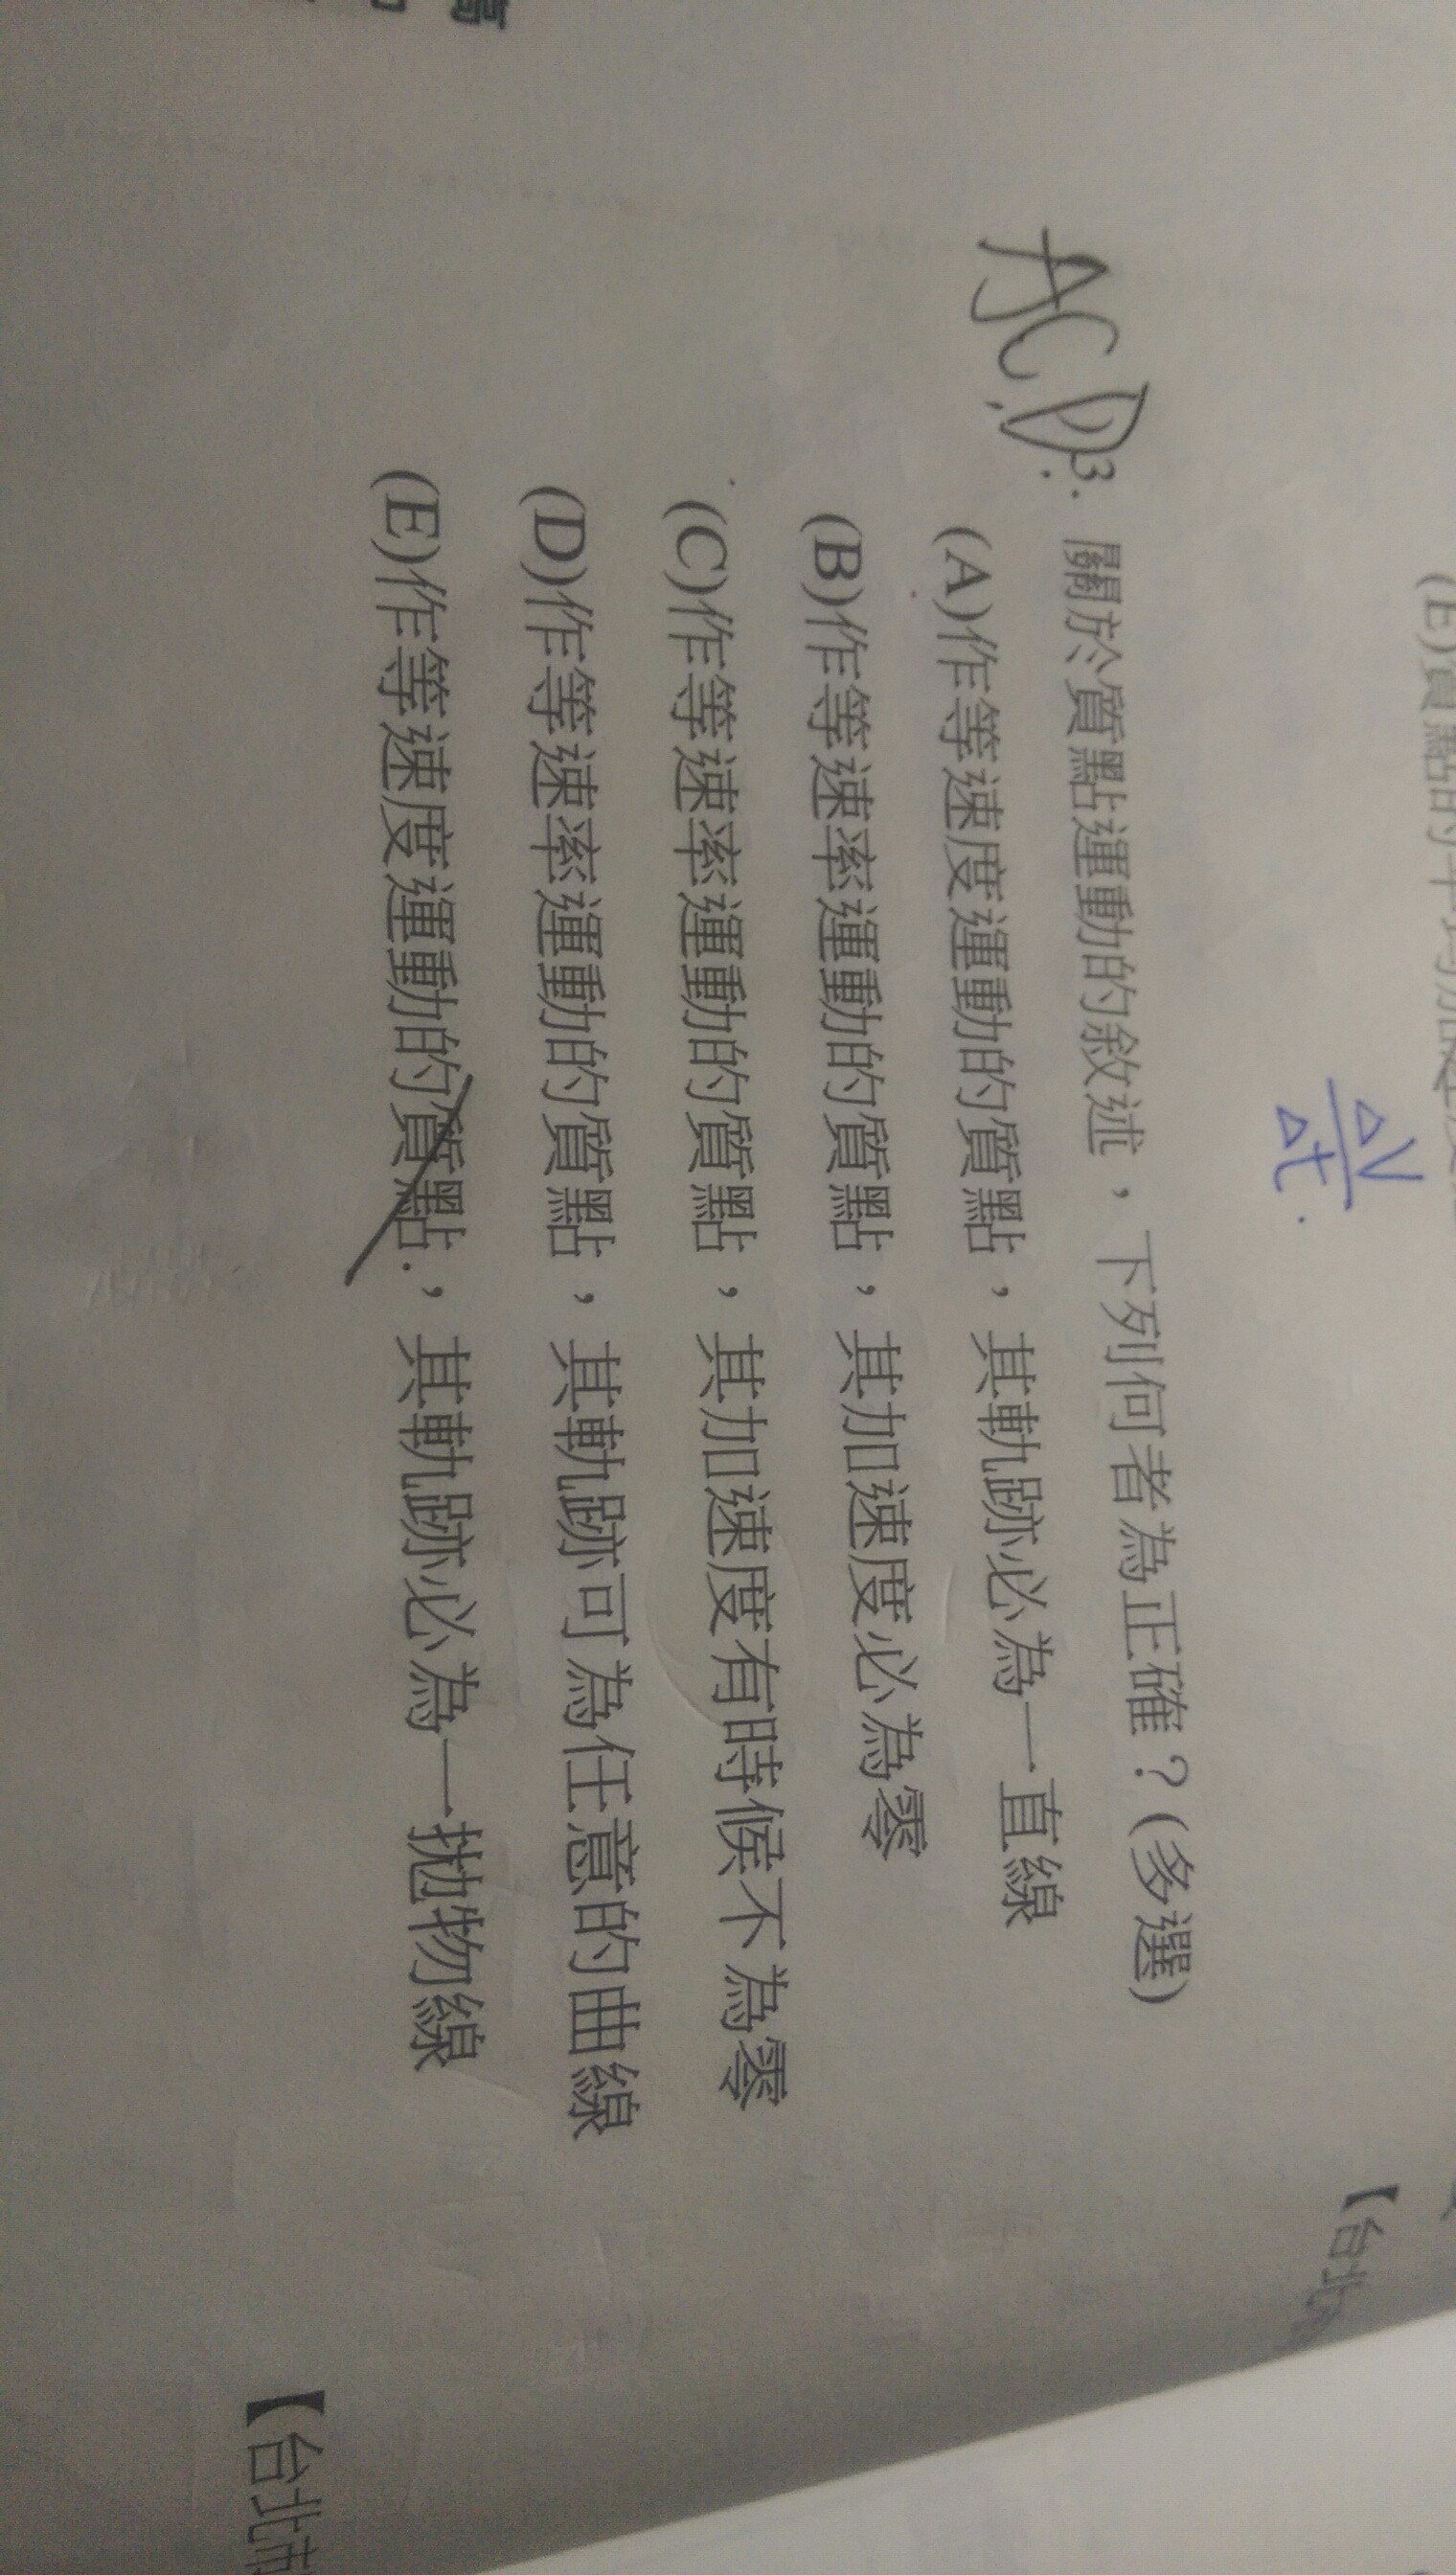 ΔV
Δt
ACD 3. 關於質點運動的敘述，下列何者為正確？(多選)
(A)作等速度運動的質點，其軌跡必為一直線
(B)作等速率運動的質點，其加速度必為零
(C)作等速率運動的質點，其加速度有時候不為零
(D)作等速率運動的質點，其軌跡亦可為任意的曲線
(E)作等速度運動的質點，其軌跡必為一拋物線
【台北
【台北市